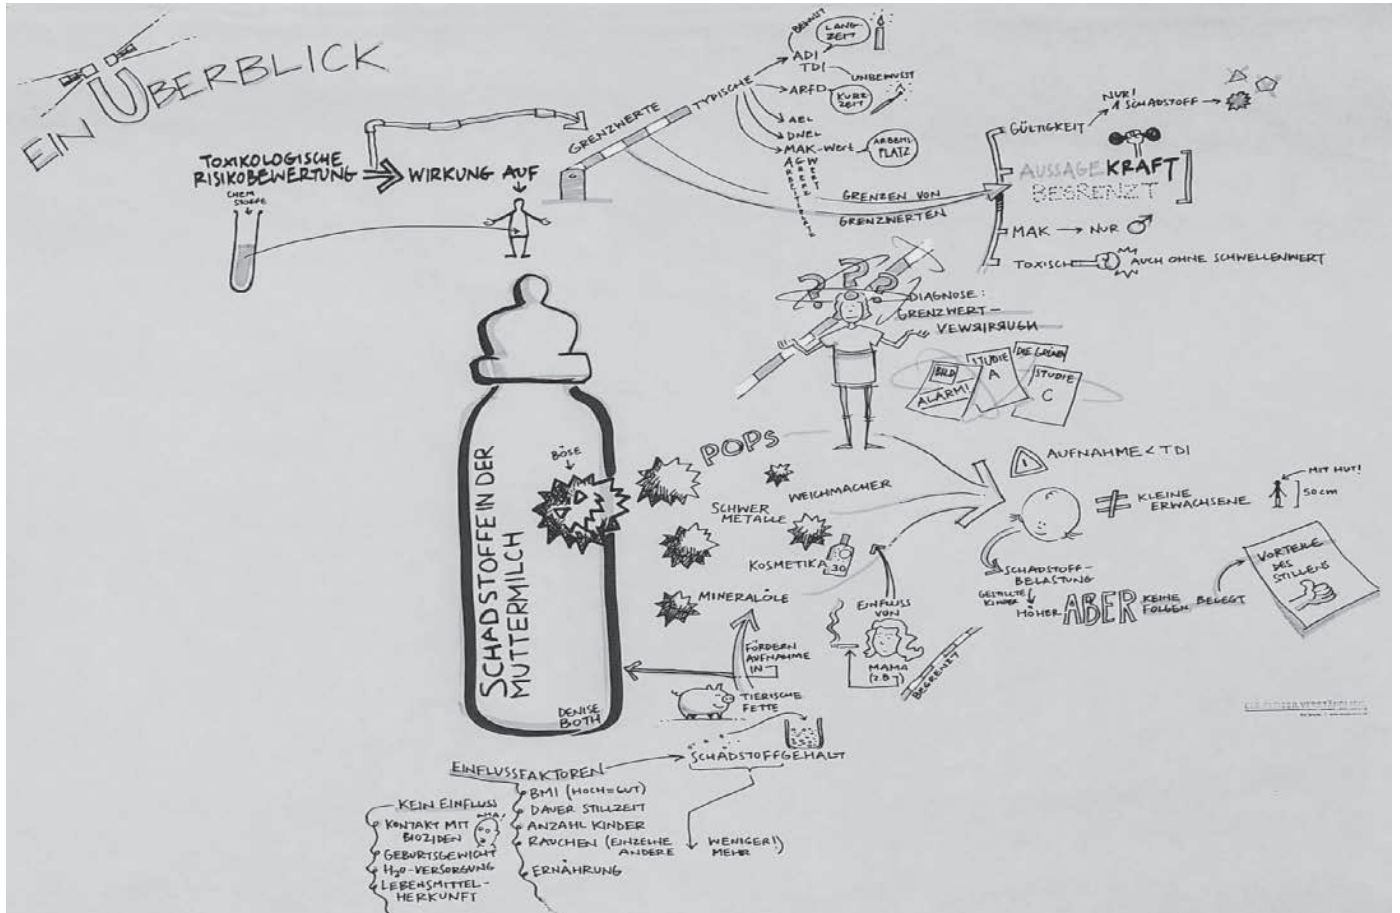 EIN ÜBERBLICK
TOXIKOLOGISCHE
RISIKOBEWERTUNG
WIRKUNG AUF
CHEM.
STOFFE
GRENZWERTE
TYPISCHE
BEWUSST
LANG
ZEIT
ADI
TDI
UNBEWUSST
ARFD
KURZ
ZEIT
AEL
DNEL
MAK-Wert
ARBEITS
PLATZ
AGW
GRENZEN VON
GRENZWERTEN
NUR!
1 SCHADSTOFF
GÜLTIGKEIT
AUSSAGEKRAFT
BEGRENZT
MAK → NUR ♂
TOXISCH
AUCH OHNE SCHWELLENWERT
???
DIAGNOSE:
GRENZWERT-
VEWRIRRUGN
BILD
ALARM!
STUDIE
A
DIE GRÜNEN
STUDIE
C
SCHADSTOFFE IN DER
MUTTERMILCH
BÖSE
DENISE
BOTH
POPs
WEICHMACHER
SCHWER
METALLE
KOSMETIKA
30
MINERALÖLE
FÖRDERN
AUFNAHME
IN
TIERISCHE
FETTE
EINFLUSS
VON
MAMA
(Z.B.)
BEGRENZT
! AUFNAHME < TDI
≠ KLEINE
ERWACHSENE
MIT HUT!
50cm
SCHADSTOFF-
BELASTUNG
GESTILLTE
KINDER
HÖHER
ABER
KEINE
FOLGEN BELEGT
VORTEILE
DES
STILLENS
SCHADSTOFFGEHALT
EINFLUSSFAKTOREN
BMI (HOCH=GUT)
DAUER STILLZEIT
ANZAHL KINDER
RAUCHEN (EINZELNE WENIGER!)
ANDERE MEHR
ERNÄHRUNG
KEIN EINFLUSS
KONTAKT MIT
BIOZIDEN
GEBURTSGEWICHT
H2O-VERSORGUNG
LEBENSMITTEL-
HERKUNFT